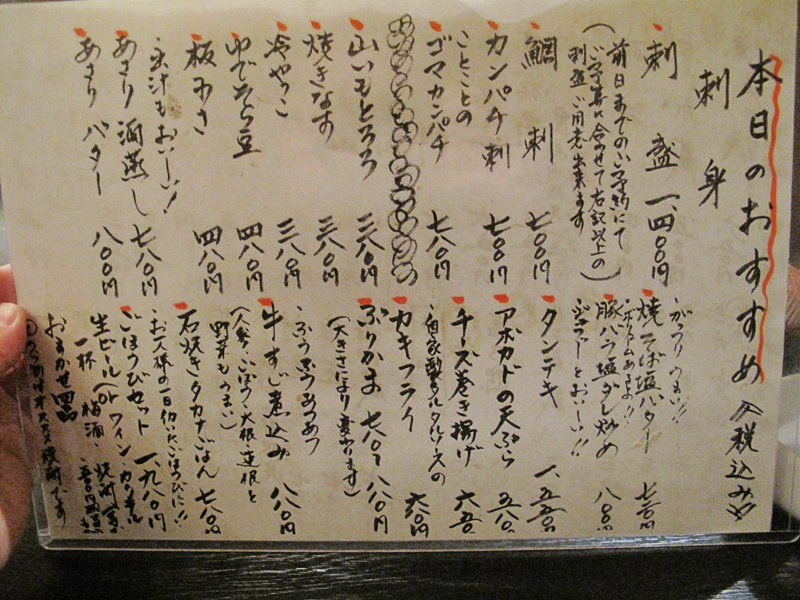 本日のおすすめ 税込み
刺身
刺盛 一、四〇〇円
前日までのご予約にて
ご予算に合わせて右記以上の
刺盛ご用意出来ます
鯛刺 七〇〇円
カンパチ刺 七〇〇円
ことことの
ゴマカンパチ 七八〇円
山いもとろろ 三八〇円
焼きなす 三八〇円
冷やっこ 三八〇円
ゆでそら豆 四八〇円
板わさ 四八〇円
お汁もおいしーい!
あさり酒蒸し 七八〇円
あさりバター 八〇〇円
がっつりうまい!!
ボリュームあるよ!!
焼そば塩バター
豚バラ塩ダレ炒め 八〇〇円
ジューシーでおいしーい!!
タンテキ
アボカドの天ぷら 五八〇
チーズ巻き揚げ 六五〇
自家製タルタルソースの
カキフライ 六八〇円
ぶりかま 七八〇〜八八〇円
(大きさにより異なります)
ふうふうあつあつ
牛すじ煮込み 八八〇円
(人参・ごぼう・大根・蓮根と
野菜もうまい)
石焼きタカナごはん 七八〇円
お一人様の一日働いたごほうびに!!
ごほうびセット 一、九八〇円
生ビール or ワイン・カクテル
一杯 梅酒・
おまかせ四品